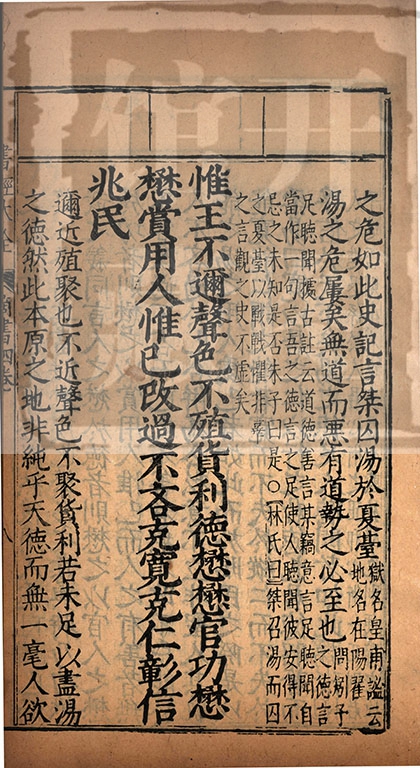 之危如此史記言桀囚湯於夏臺獄名皇甫謐云地名在陽翟
湯之危屢矣無道而惡有道勢之必至也問矧予之德言
足聽聞據古註云道德善言某竊意言足聽聞自
當作一句言吾之德言之足使人聽聞彼安得不
忌之未知是否朱子曰是○林氏曰桀召湯而囚
之夏臺以戰戰懼非辜
之言觀之史不虛矣
惟王不邇聲色不殖貨利德懋懋官功懋
懋賞用人惟已改過不吝克寬克仁彰信
兆民
邇近殖聚也不近聲色不聚貨利若未足以盡湯
之德然此本原之地非純乎天德而無一毫人欲
書經大全 商書四卷 八